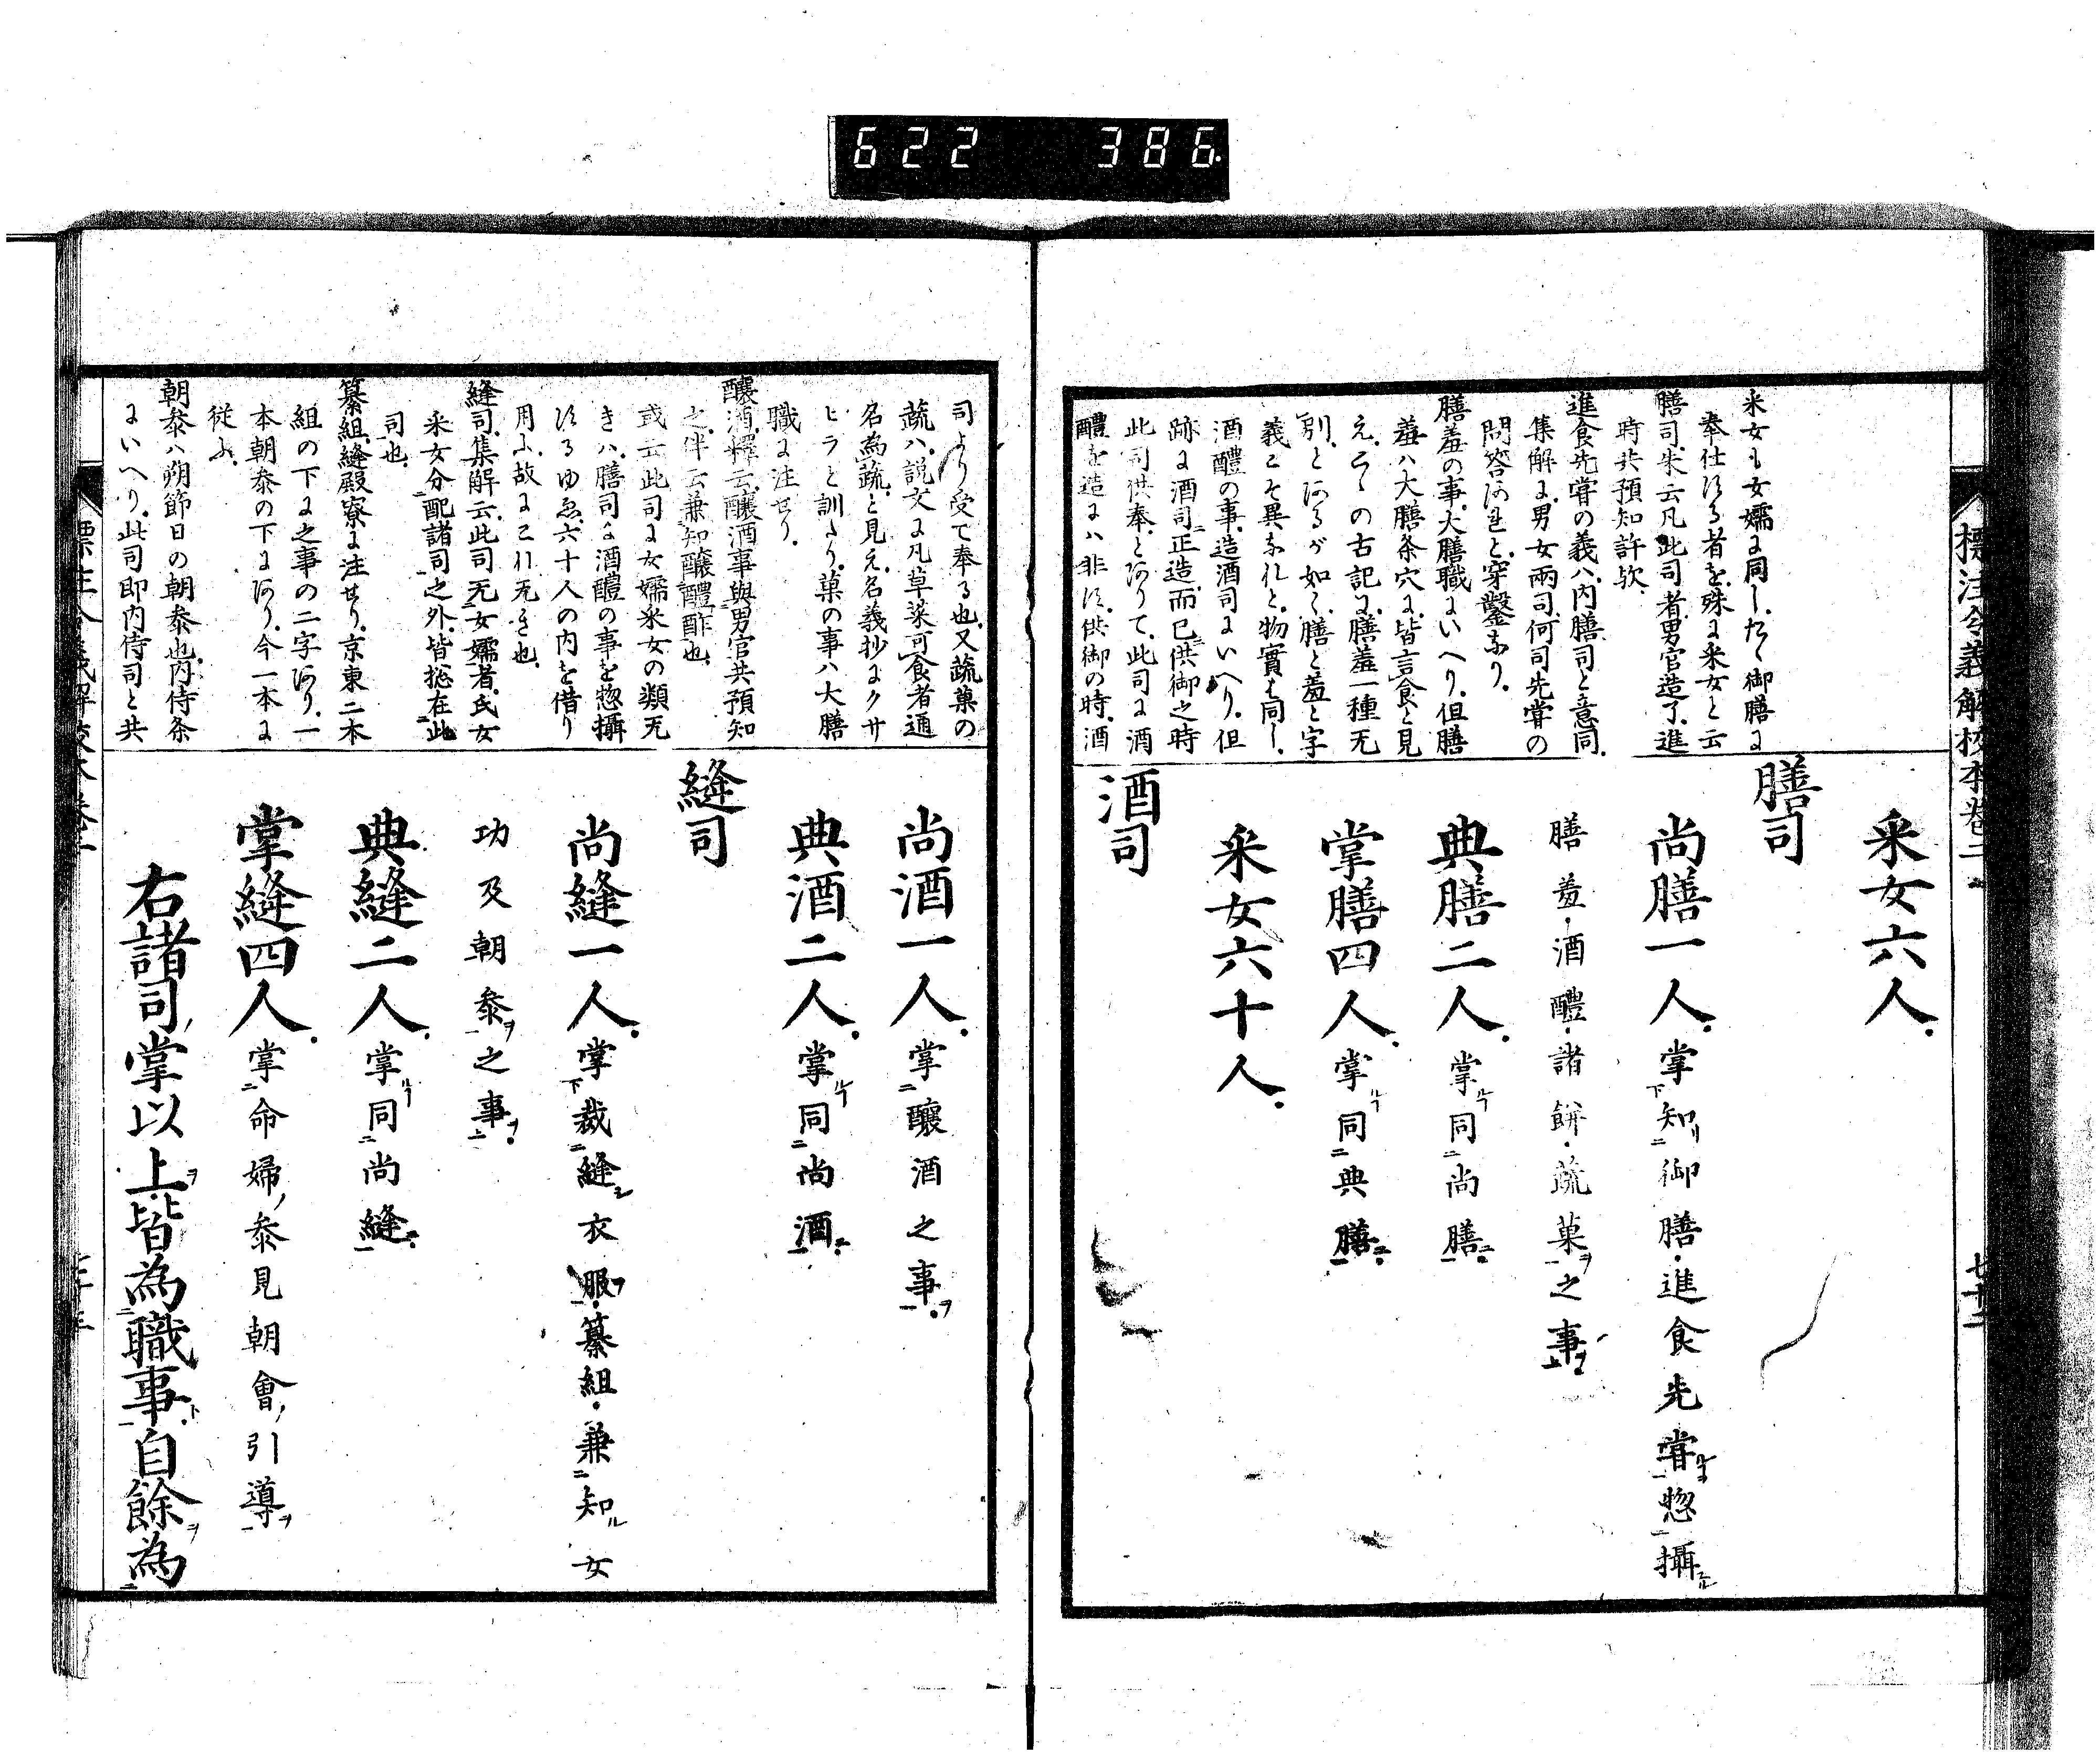 622 386
標注令義解校本巻二
采女も女孺に同し、たゝ御膳に
奉仕する者を、殊に采女と云
膳司、朱云凡此司者、男官造了、進
時共預知許欤、
進食先甞の義ハ、内膳司と意同、
集解に、男女兩司、何司先甞の
問答あれと、穿鑿なり、
膳羞の事、大膳職にいへり、但膳
羞ハ大膳条穴に、皆言食と見
え、こゝの古記に、膳羞一種无
別、とあるが如く、膳と羞と字
義こそ異なれと、物實は同し、
酒醴の事、造酒司にいへり、但
跡に酒司正造、而已供御之時
此司供奉、とありて、此司に酒
醴を造にハ非す、供御の時、酒
采女六人
膳司
尚膳一人掌知御膳・進食先甞惣攝
膳羞・酒醴・諸餅・蔬菓之事
典膳二人掌同尚膳
掌膳四人掌同典膳
采女六十人
酒司
司より受て奉る也、又蔬菓の
蔬ハ、説文に凡草菜可食者通
名為蔬、と見え、名義抄にクサ
ヒラと訓たり、菓の事ハ大膳
職に注せり、
釀酒、釋云、釀酒事與男官共預知
之、伴云兼知釀醴酢也、
或云此司に女孺采女の類无
きハ、膳司に酒醴の事を惣攝
するゆゑ、六十人の内を借り
用ふ、故にこれ无き也、
縫司、集解云、此司无女孺者、氏女
采女分配諸司之外、皆捴在此
司也、
纂組、縫殿寮に注せり、京東二本
組の下に之事の二字あり、一
本朝叅の下にあり、今一本に
従ふ、
朝叅ハ朔節日の朝叅也、内侍条
にいへり、此司即内侍司と共
尚酒一人掌釀酒之事
典酒二人掌同尚酒
縫司
尚縫一人掌裁縫衣服・纂組・兼知女
功及朝叅之事
典縫二人掌同尚縫
掌縫四人掌命婦叅見朝會引導
右諸司掌以上皆為職事自餘為